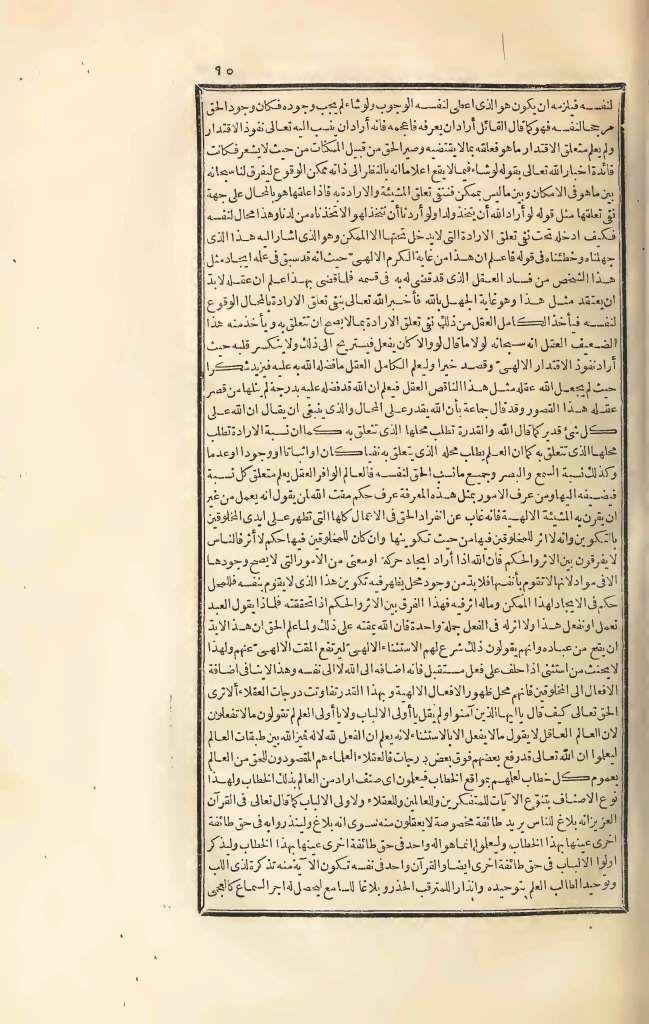 ٩٠
لنفسه فيلزمه ان يكون هو الذى اعطى لنفسه الوجوب ولو شاء لم يجب وجوده فكان وجود الحق
مرجحا لنفسه فهو كما قال القائل أراد ان يعربه فأعجمه فانه أراد ان ينسب اليه تعالى نفوذ الاقتدار
ولم يعلم متعلق الاقتدار ما هو فعلقه بما لا يقتضيه وصير الحق من قبيل الممكنات من حيث لا يشعر فكانت
فائدة اخبار الله تعالى بقوله لو شاء فيما لا يقع اعلاما انه بالنظر الى ذاته ممكن الوقوع ليفرق لنا سبحانه
بين ما هو فى الامكان وبين ما ليس بممكن فنفى تعلق المشيئة والارادة به فاذا علقها هو بالمحال على جهة
نفى تعلقها مثل قوله لو أراد الله أن يتخذ ولدا ولو أردنا أن نتخذ لهوا لاتخذناه من لدنا وهذا محال لنفسه
فكيف ادخله تحت نفى تعلق الارادة التى لا يدخل تحتها الا الممكن وهو الذى اشار اليه هذا الذى
جهلناه وخطئناه فى قوله فاعلم ان هذا من غاية الكرم الالهى حيث انه قد سبق فى علمه ايجاد مثل
هذا الشخص من فساد العقل الذى قد قضى له به فى قسمه فلما قضى بهذا علم ان عقله لابد
ان يعتقد مثل هذا وهو غاية الجهل بالله فأخبر الله تعالى بنفى تعلق الارادة بالمحال الوقوع
لنفسه فيأخذ الكامل العقل من ذلك نفى تعلق الارادة بما لا يصح ان تتعلق به ويأخذ منه هذا
الضعيف العقل انه سبحانه لولا ما قال لو والا كان يفعل فيستريح الى ذلك ولا ينكسر قلبه حيث
أراد نفوذ الاقتدار الالهى وقصد خيرا وليعلم الكامل العقل ما فضله الله به عليه فيزيد شكرا
حيث لم يجعل الله عقله مثل هذا الناقص العقل فيعلم ان الله قد فضله عليه بدرجة لم ينلها من قصر
عقله هذا القصور وقد قال جماعة بأن الله يقدر على المحال والذى ينبغى ان يقال ان الله على
كل شئ قدير كما قال الله والقدرة تطلب محلها الذى تتعلق به كما ان نسبة الارادة تطلب
محلها الذى تتعلق به كما ان العلم يطلب محله الذى يتعلق به نفيا كان او اثباتا او وجودا او عدما
وكذلك نسبة السمع والبصر وجميع ما نسب الحق لنفسه فالعالم الوافر العقل يعلم متعلق كل نسبة
فيضيفه اليها ومن عرف الامور بمثل هذه المعرفة عرف حكم مقت الله لمن يقول انه يعمل من غير
ان يقرن به المشيئة الالهية فانه غاب عن انفراد الحق فى الاعمال كلها التى تظهر على ايدى المخلوقين
بالتكوين وانه لا اثر للمخلوقين فيها من حيث تكوينها وان كان للمخلوقين فيها حكم لا أثر فالناس
لا يفرقون بين الاثر والحكم فان الله اذا أراد ايجاد حركة او معنى من الامور التى لا يصح وجودها
الا فى مواد لانها لا تقوم بأنفسها فلابد من وجود محل يظهر فيه تكوين هذا الذى لا يقوم بنفسه فللمحل
حكم فى الايجاد لهذا الممكن وماله اثر فيه فهذا الفرق بين الاثر والحكم اذا تحققته فلماذا يقول العبد
نعمل او نفعل هذا ولا اثر له فى الفعل جملة واحدة فان الله يمقته على ذلك ولما علم الحق ان هذا لابد
ان يقع من عباده وانهم يقولون ذلك شرع لهم الاستثناء الالهى ليرتفع المقت الالهى عنهم ولهذا
لا يحنث من استثنى اذا حلف على فعل مستقبل فانه اضافه الى الله لا الى نفسه وهذا لا ينافى اضافة
الافعال الى المخلوقين فانهم محل ظهور الافعال الالهية وبهذا القدر تفاوتت درجات العقلاء ألا ترى
الحق تعالى كيف قال يا ايها الذين آمنوا ولم يقل يا أولى الالباب ولا يا أولى العلم لم تقولون ما لا تفعلون
لان العالم العاقل لا يقول ما لا يفعل الا بالاستثناء لانه يعلم ان الفعل لله لا له فميز الله بين طبقات العالم
ليعلموا ان الله تعالى قد رفع بعضهم فوق بعض درجات فالعقلاء العلماء هم المقصودون للحق من العالم
بعموم كل خطاب لعلهم بمواقع الخطاب فيعلمون اى صنف اراد من العالم بذلك الخطاب ولهذا
نوع الاصناف بتنوع الآيات للمتفكرين وللعالمين وللعقلاء ولاولى الالباب كما قال تعالى فى القرآن
العزيز انه بلاغ للناس يريد طائفة مخصوصة لا يعقلون منه سوى انه بلاغ ولينذروا به فى حق طائفة
اخرى عينها بهذا الخطاب وليعلموا انما هو اله واحد فى حق طائفة اخرى عينها بهذا الخطاب وليذكر
اولوا الالباب فى حق طائفة اخرى ايضا والقرآن واحد فى نفسه تكون الآية منه تذكرة لذى اللب
وتوحيدا لطالب العلم بتوحيده وانذارا للمترقب الحذر وبلاغا للسامع ليحصل له اجر السماع كالعجمى